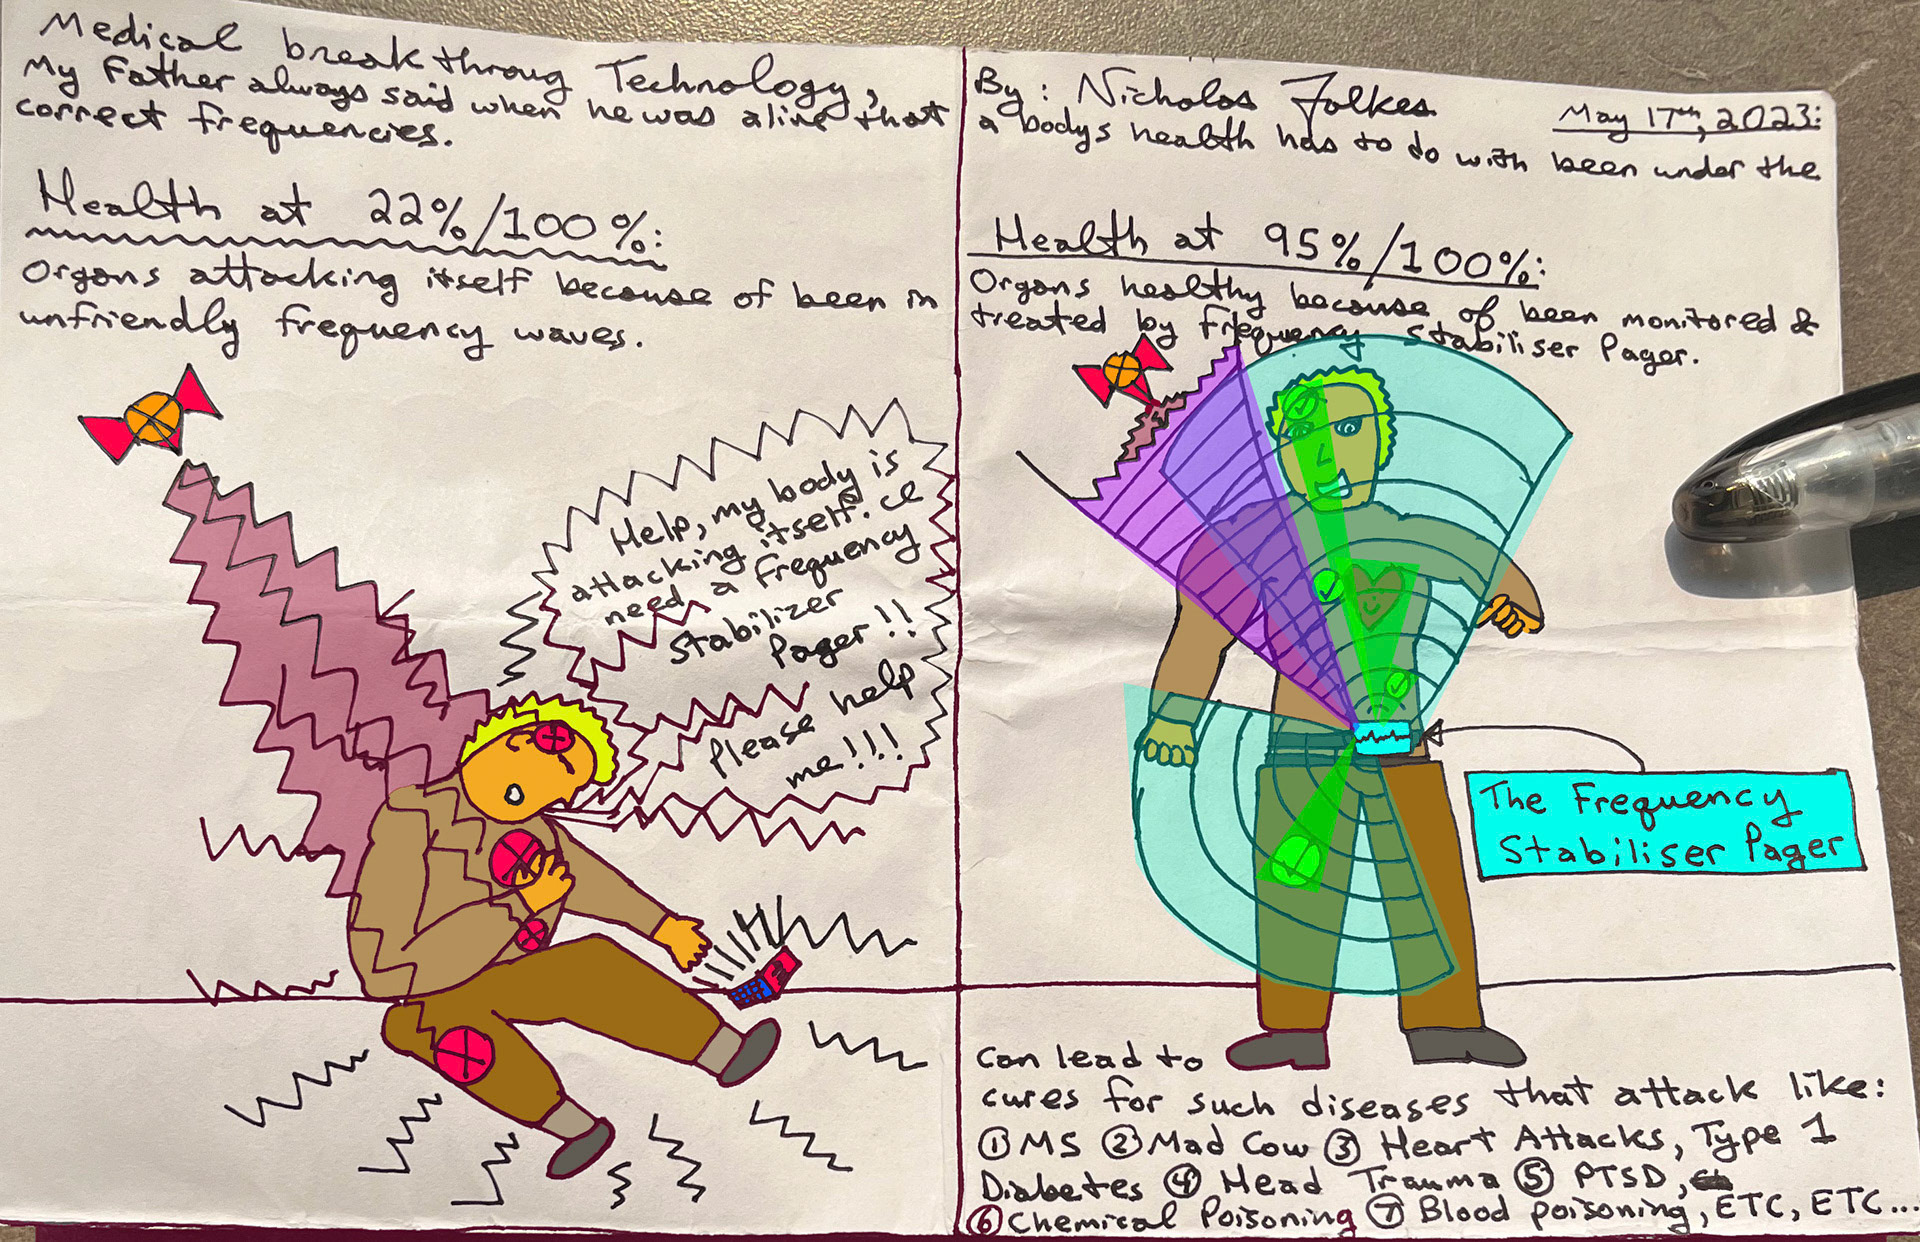 Medical breakthroug Technology,
My Father always said when he was alive that
correct frequencies.
Health at 22%/100%:
Organs attacking itself because of been in
unfriendly frequency waves.
Help, my body is
attacking itself. ce
need a frequency
stabilizer
Pager!!
Please help
me!!!
By: Nicholas Folkes
May 17th, 2023:
a bodys health has to do with been under the
Health at 95%/100%:
Organs healthy because of been monitored &
treated by Frequency Stabiliser Pager.
The Frequency
Stabiliser Pager
can lead to
cures for such diseases that attack like:
① MS ② Mad Cow ③ Heart Attacks, Type 1
Diabetes ④ Head Trauma ⑤ PTSD,
⑥ Chemical Poisoning ⑦ Blood poisoning, ETC, ETC...